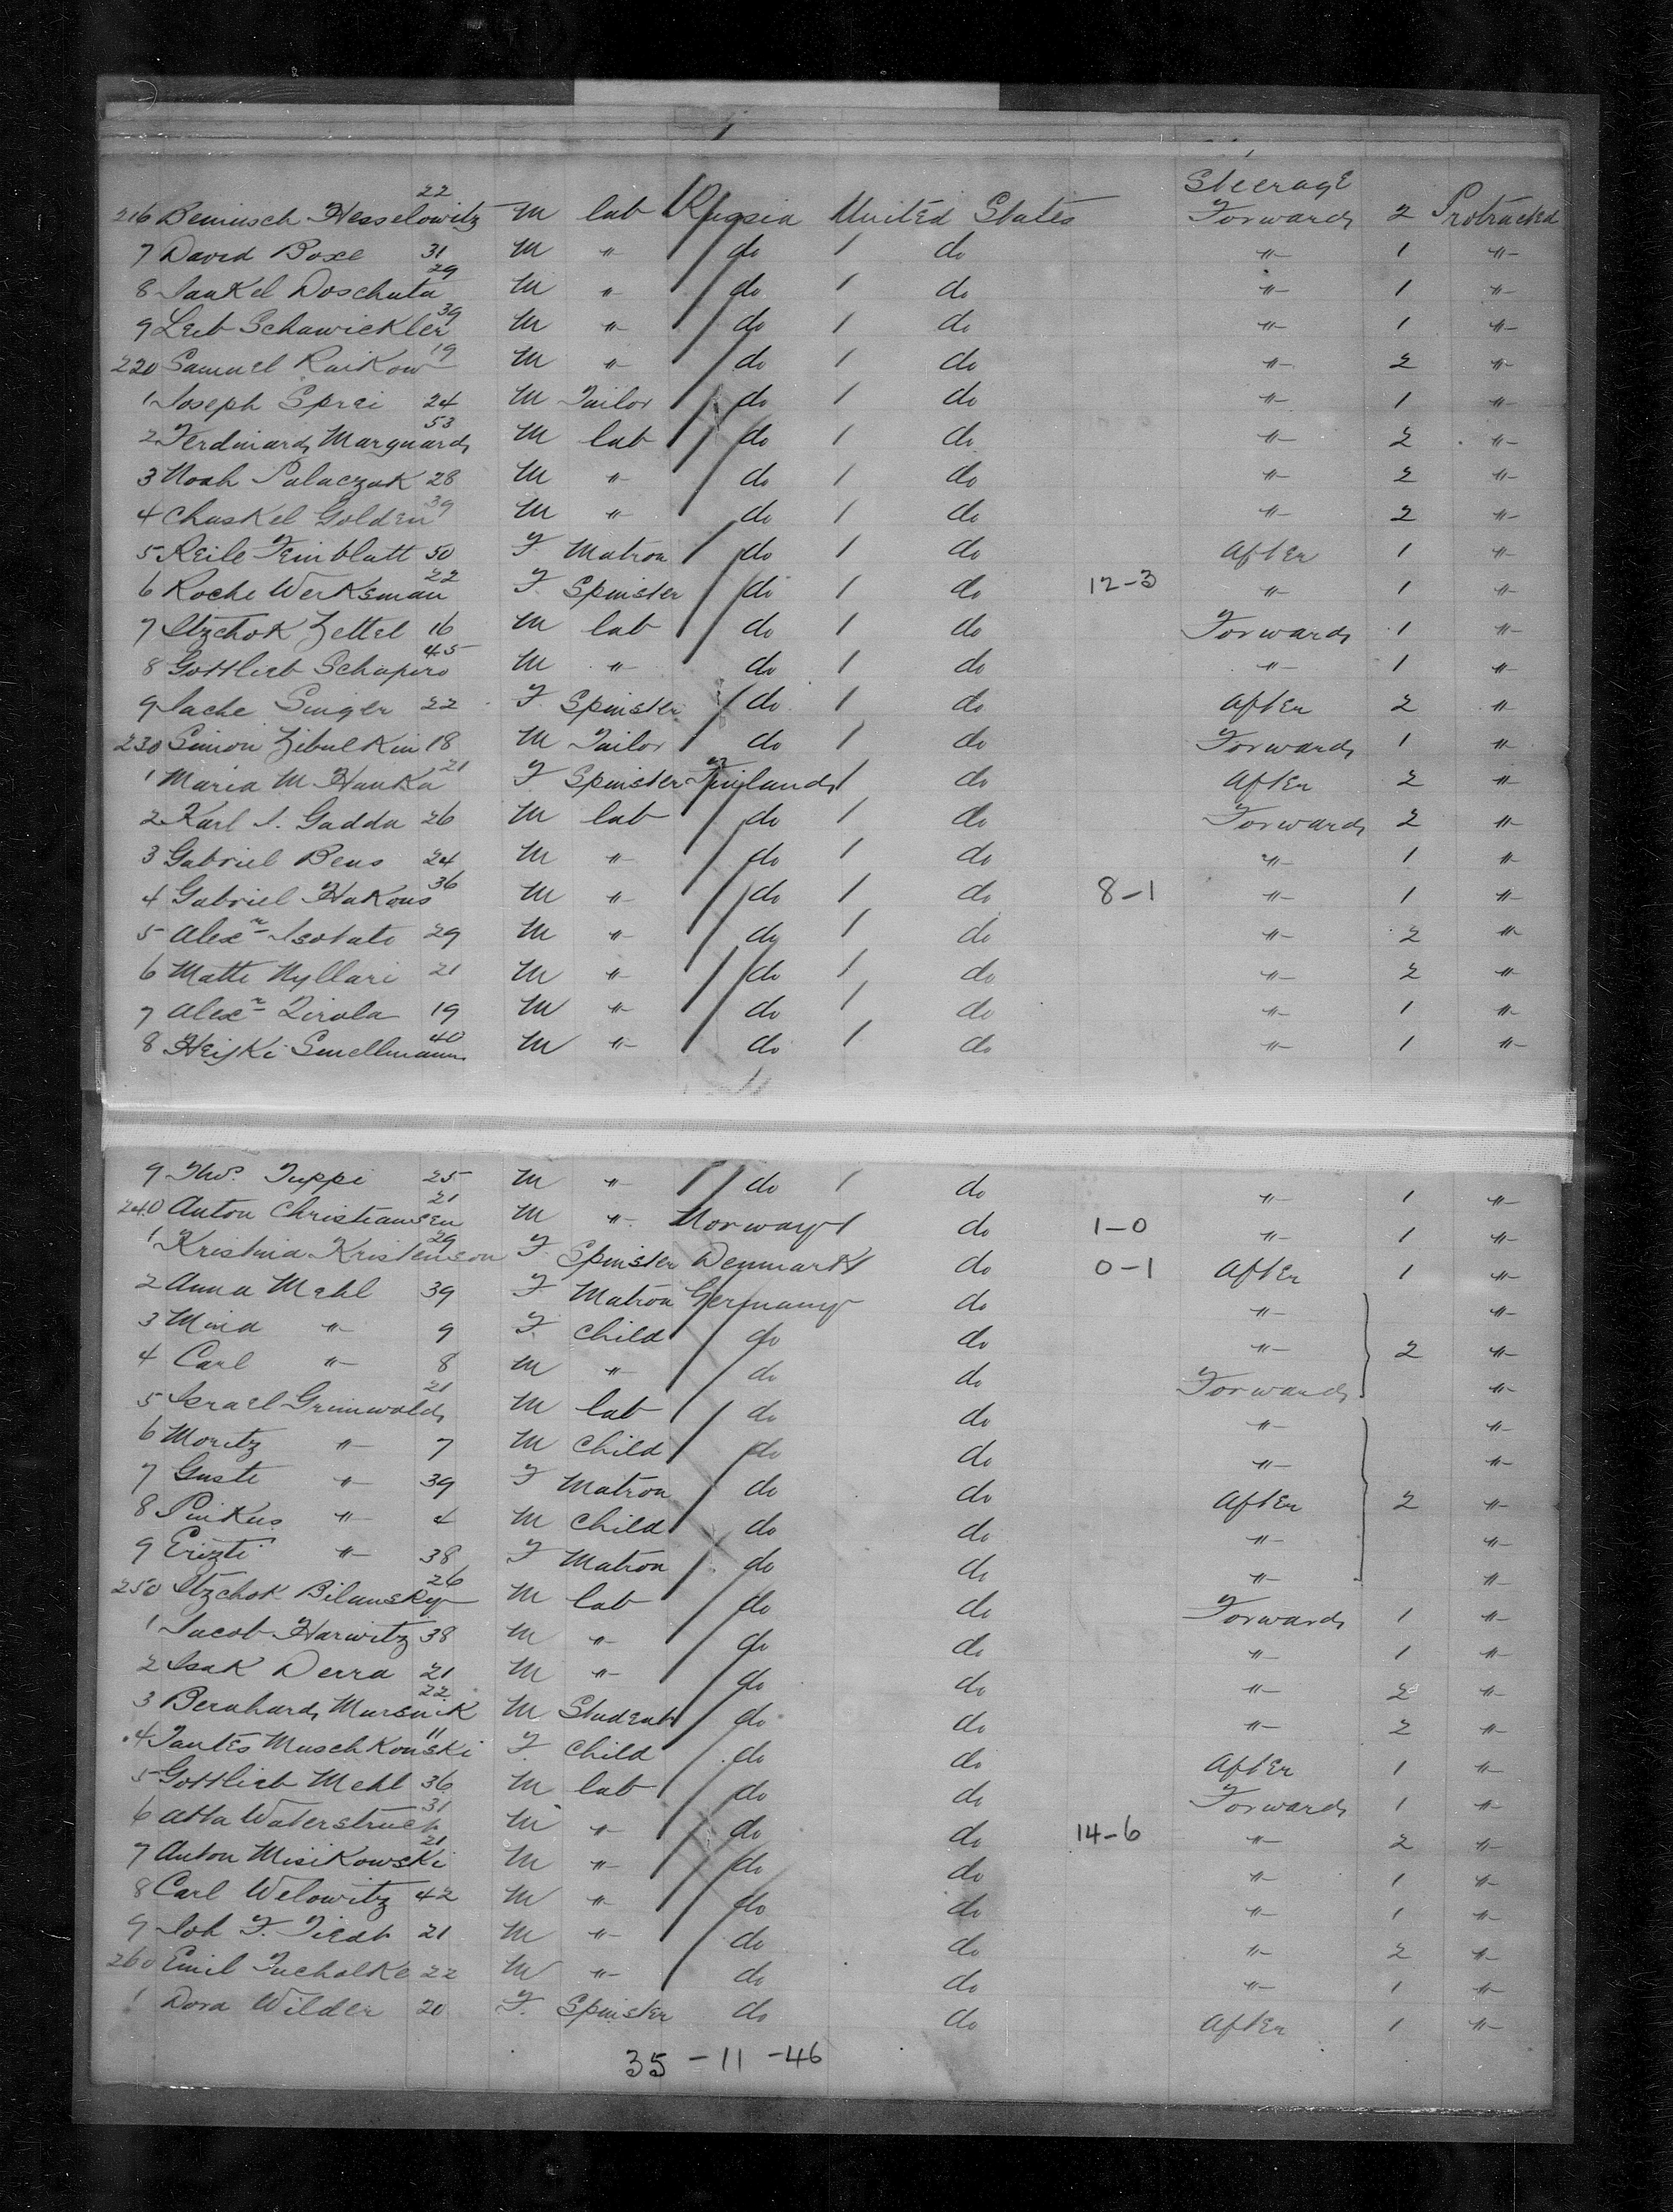 Steerage
216 Beniusch Hesselowitz 22 M lab Russia United States Forward 2 Protracted
7 David Boxe 31 M " do do " 1 "
8 Jankel Doschuta 29 M " do do " 1 "
9 Leib Schawickler 39 M " do do " 1 "
220 Samuel Raikow 19 M " do do " 2 "
1 Joseph Sprei 24 M Tailor do do " 1 "
2 Ferdinand Marquard 53 M lab do do " 2 "
3 Noah Palaczuk 28 M " do do " 2 "
4 Chaskel Golden 39 M " do do " 2 "
5 Reile Feinblatt 50 F. Matron do do After 1 "
6 Roche Werksman 22 F. Spinster do do 12-3 " 1 "
7 Itzchok Zettel 16 M lab do do Forward 1 "
8 Gottlieb Schapiro 45 M " do do " 1 "
9 Jache Singer 22 F. Spinster do do After 2 "
230 Simon Zibulkin 18 M Tailor do do Forward 1 "
1 Maria M Hauka 21 F Spinster Finland do After 2 "
2 Karl J. Gadda 26 M lab do do Forward 2 "
3 Gabriel Bens 24 M " do do " 1 "
4 Gabriel Hakons 36 M " do do 8-1 " 1 "
5 Alexr Isotalo 29 M " do do " 2 "
6 Matti Nyllari 21 M " do do " 2 "
7 Alexr Zirola 19 M " do do " 1 "
8 Heiski Smellmann 40 M " do do " 1 "
9 Thos. Tuppi 25 M " do do " 1 "
240 Anton Christiansen 21 M " Norway do 1-0 " 1 "
1 Kristina Kristenson 29 F. Spinster Denmark do 0-1 After 1 "
2 Anna Mehl 39 F Matron Germany do " "
3 Mina " 9 F. Child do do " 2 "
4 Carl " 8 M " do do Forward "
5 Israel Grunwald 21 M lab do do " "
6 Moritz " 7 M Child do do " "
7 Guste " 39 F Matron do do After 2 "
8 Pinkus " 4 M Child do do " "
9 Erizti " 38 F Matron do do " "
250 Itzchok Bilansky 26 M lab do do Forward 1 "
1 Jacob Harwitz 38 M " do do " 1 "
2 Isak Derra 21 M " do do " 2 "
3 Bernhard Mursuik 22 M Student do do " 2 "
4 Jantes Muschkonski 11 F. Child do do After 1 "
5 Gottlieb Mehl 36 M lab do do Forward 1 "
6 Atta Waterstruck 31 M " do do 14-6 " 2 "
7 Anton Misikowski 21 M " do do " 1 "
8 Carl Welowitz 42 M " do do " 1 "
9 Joh F. Tiedt 21 M " do do " 2 "
260 Emil Tucholke 22 M " do do " 1 "
1 Dora Wilder 20 F. Spinster do do After 1 "
35-11-46